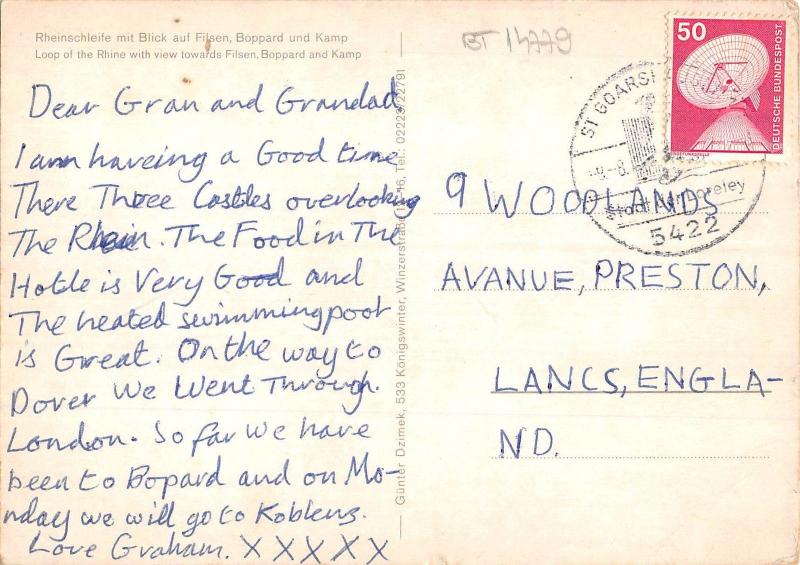 Rheinschleife mit Blick auf Filsen, Boppard und Kamp
Loop of the Rhine with view towards Filsen, Boppard and Kamp
BT 14779
Dear Gran and Grandad
I am haveing a Good time
There Three Castles overlooking
The Rhein. The Food in The
Hotle is Very Good and
The heated swimmingpool
is Great. On the way to
Dover We Went Through
London. So far we have
been to Bopard and on Mo-
nday we will go to Koblens.
Love Graham. X X X X X
Günter Dzimek, 533 Königswinter, Winzerstraße 16, Tel.: 02223/22791
50
DEUTSCHE BUNDESPOST
ST GOARSH
Stadt der Loreley
5422
9 WOODLANDS
AVANUE, PRESTON,
LANCS, ENGLA-
ND.